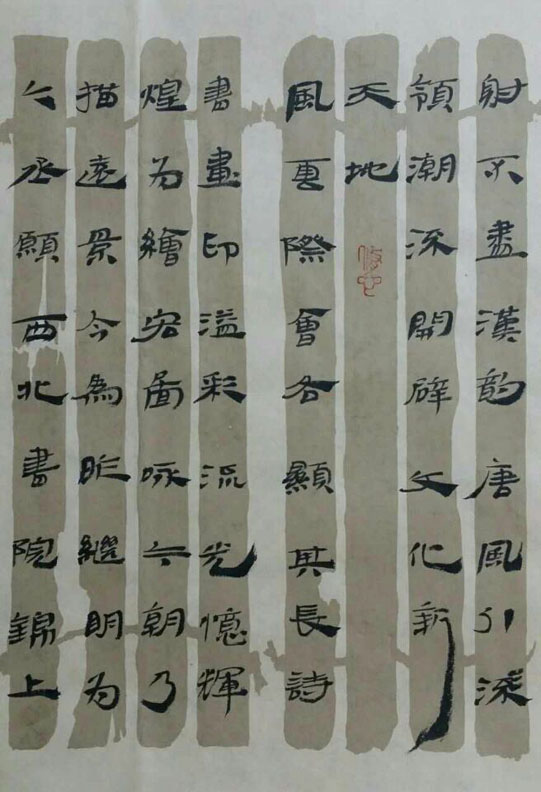 射不盡漢韵唐風引深
領潮深開辟文化新
天地
風際會各顯其長詩
書畫印溢彩流光憶輝
煌为繪宏圖咏六朝乃
描遠景今為昨繼明为
今丞願西北書院錦上